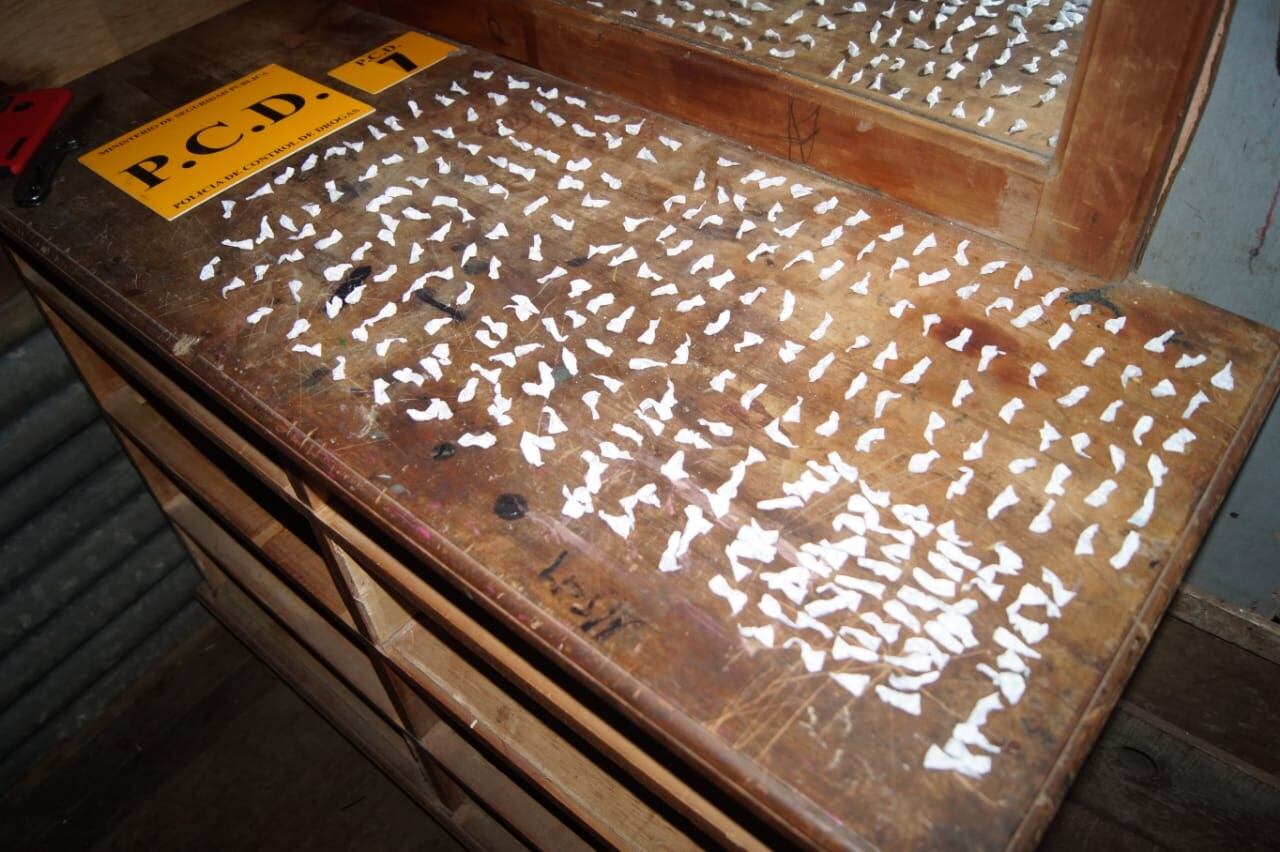 MINISTERIO DE SEGURIDAD PUBLICA
P.C.D.
POLICIA DE CONTROL DE DROGAS
P.C.D.
7